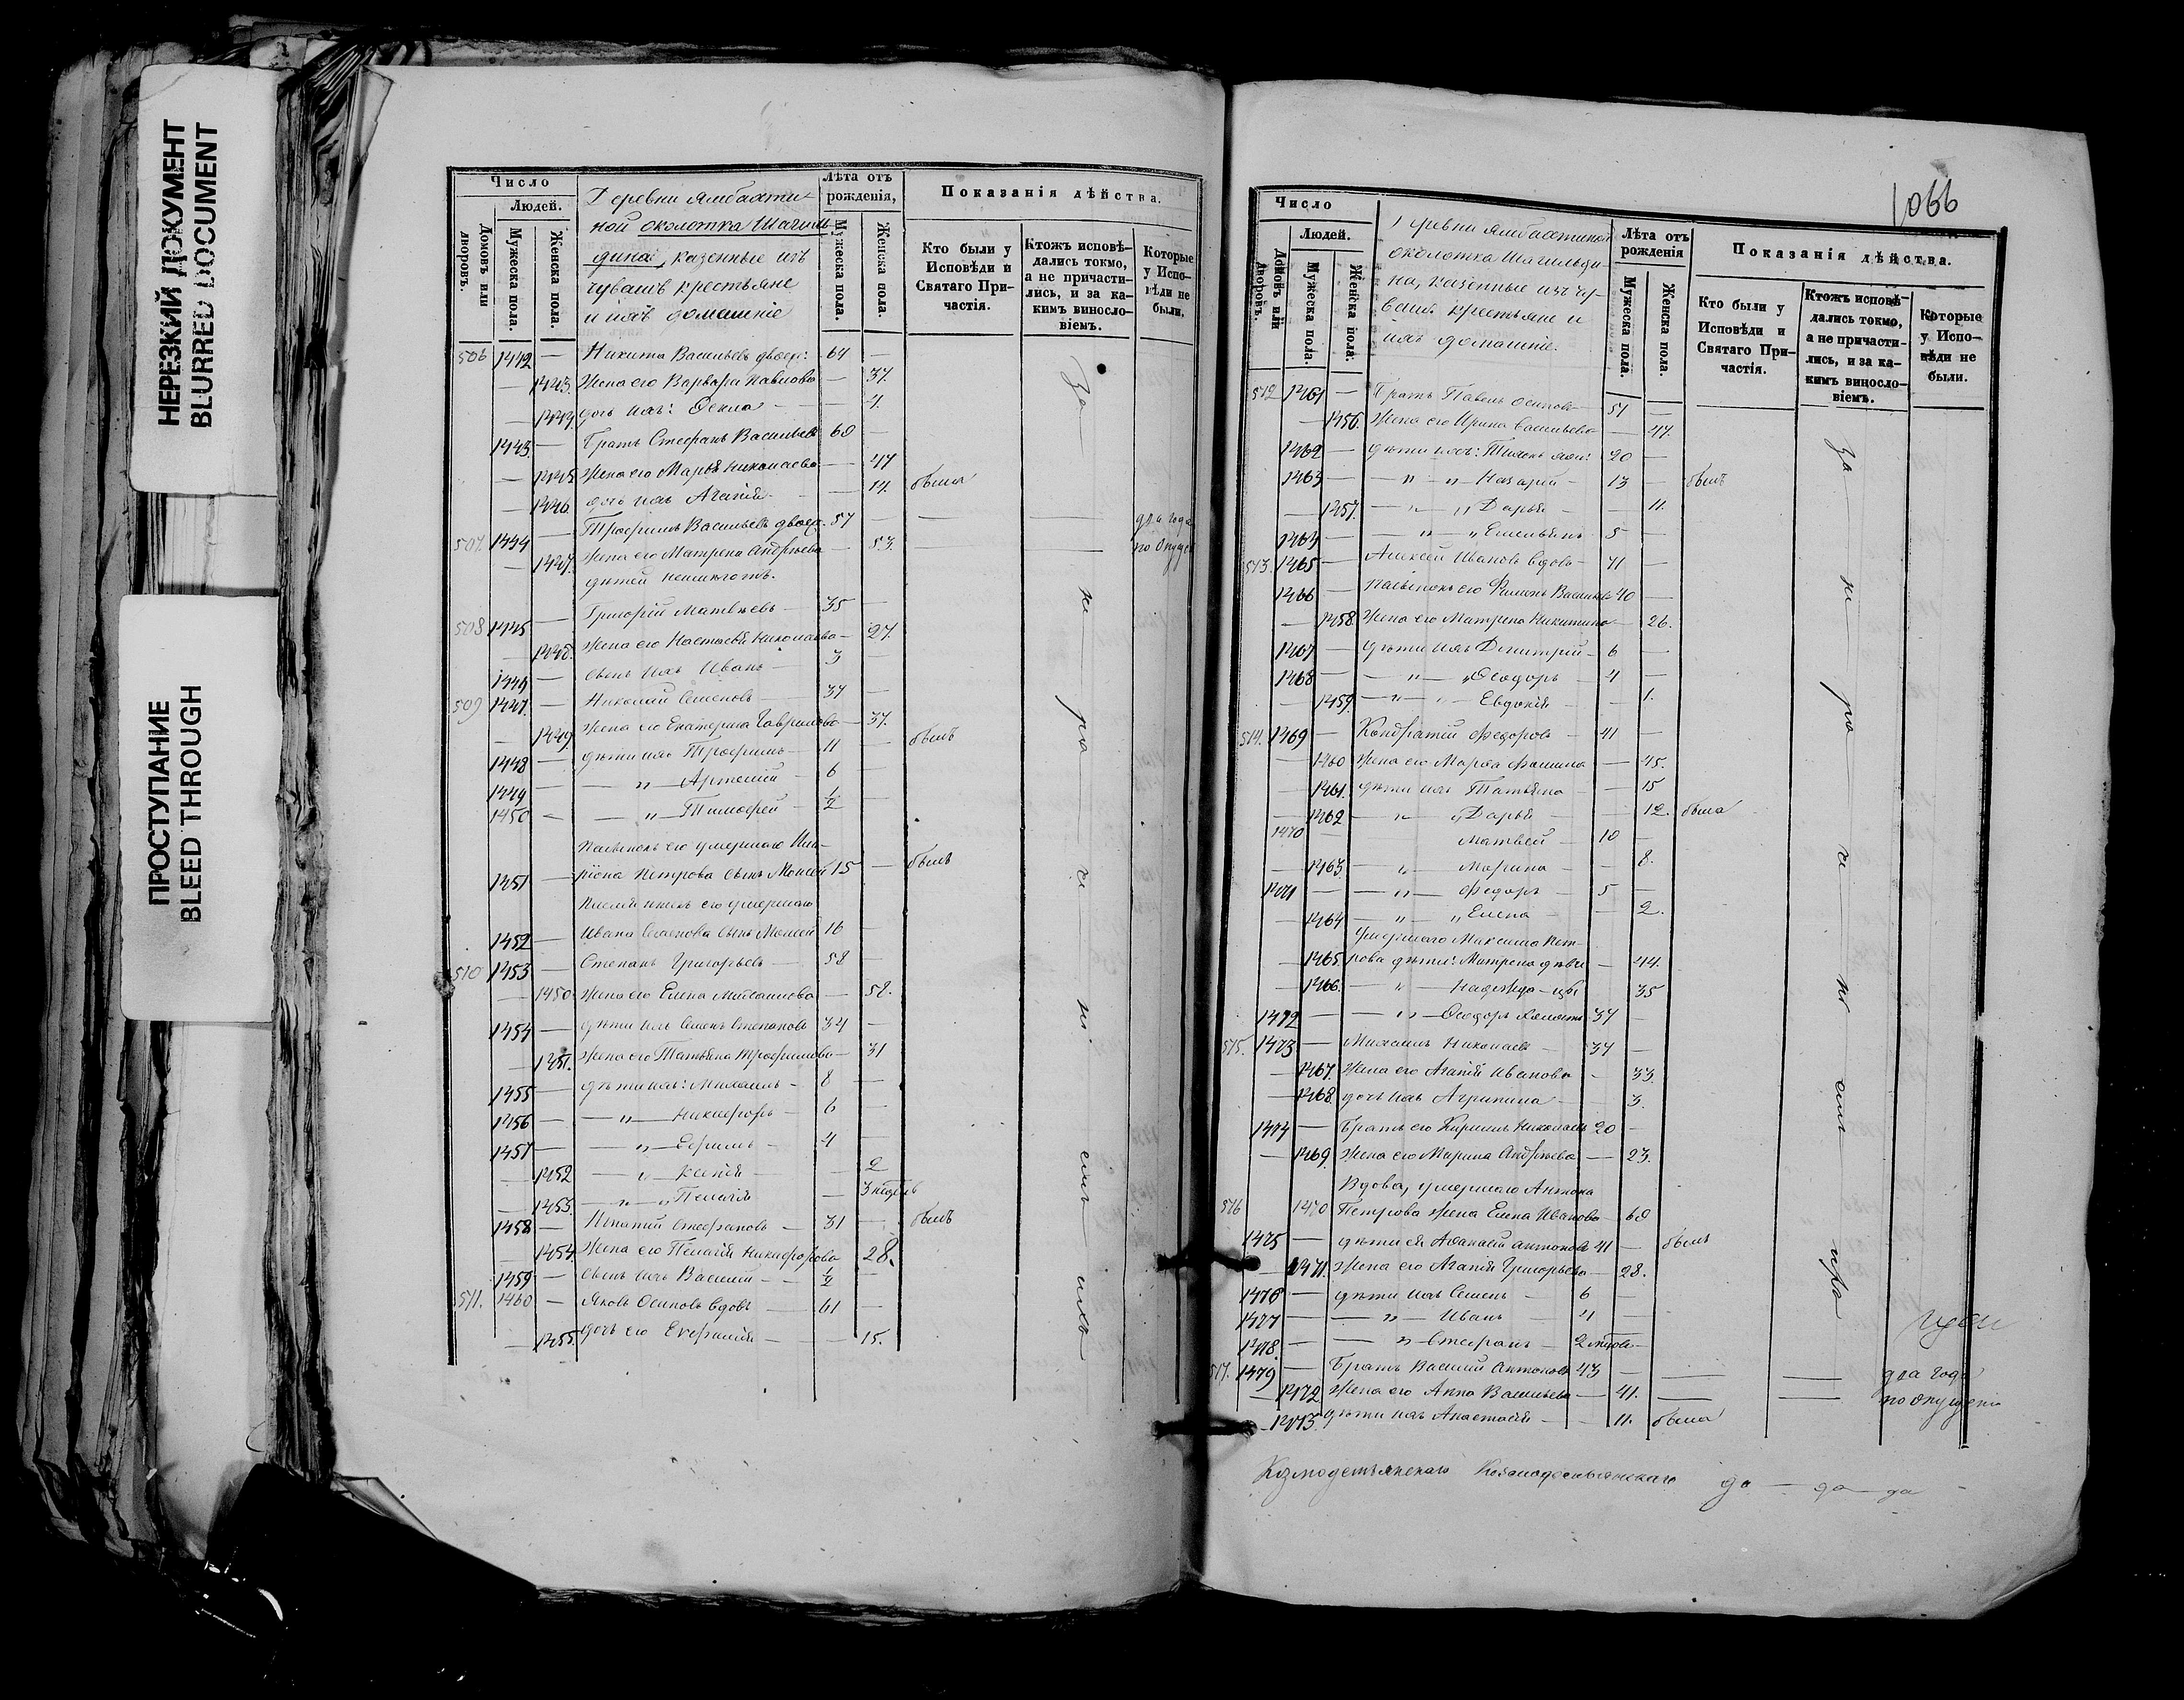 НЕРЕЗКИЙ ДОКУМЕНТ
BLURRED DOCUMENT
ПРОСТУПАНИЕ
BLEED THROUGH
Число
Людей.
Домовъ или дворовъ.
Мужеска пола.
Женска пола.
Деревни Ямбахти-
ной околотка Шагиль-
дина, казенные изъ
чувашъ крестьяне
и ихъ домашніе
Лѣта отъ рожденія,
Мужеска пола.
Женска пола.
Показанія дѣйства.
Кто были у Исповѣди и Святаго При-частія.
Ктожъ исповѣ-дались токмо, а не причасти-лись, и за ка-кимъ винословіемъ.
Которые у Испо-вѣди не были.
506 1442 — Никита Васильевъ двоеж: 64 —
— 1443. Жена его Варвара Павлова — 37.
— 1444. дочь ихъ: Ѳекла — 4.
1443. — Братъ Стефанъ Васильевъ 60 —
— 1445 Жена его Марья Николаева — 47
— 1446. дочь ихъ Агапія — 14. была
507. 1444 — Трофимъ Васильевъ двоеж. 57 — — два года
— 1447. Жена его Матрена Андреева — 53. — по опущ
дѣтей неимѣютъ.
508 1445 — Григорій Матвѣевъ — 35 —
— 1448. Жена его Настасья Николаева — 27.
1446 — сынъ ихъ Иванъ — 3
509 1447. — Николай Семеновъ — 37 —
— 1449 Жена его Екатерина Гаврилова — 37.
1448 — дѣти ихъ Трофимъ — 11 — былъ
1449 — — „ — Артемій — 6 —
1450 — — „ — Тимофей — 1/2 —
Пасынокъ его умершаго Ила-
1451 — ріона Петрова сынъ Моисей 15 — былъ
Племянникъ его умершаго
1452 — Ивана Семенова сынъ Моисей 16 —
510 1453 — Степанъ Григорьевъ — 58 —
— 1450. Жена его Елена Михайлова — 52.
1454 — дѣти ихъ Семенъ Степановъ 34 —
— 1451. Жена его Татьяна Трофимова — 31
1455 — дѣти ихъ: Михаилъ — 8 —
1456 — — „ — Никифоръ — 6 —
1457 — — „ — Ефимъ — 4 —
— 1452 — „ — Ксенія — 2
— 1453. — „ — „ Пелагія — 3 недѣль
1458 — Игнатій Стефановъ — 31 — былъ
— 1454. Жена его Пелагія Никифорова 28.
1459 — сынъ ихъ Василій — 1/2 —
511. 1460 — Яковъ Осиповъ вдовъ — 61 —
— 1455. дочь его Евфимія — — 15.
1066
Число
Людей.
Домовъ или дворовъ.
Мужеска пола.
Женска пола.
Деревни Ямбахтиной
околотка Шагильди-
на, казенные изъ чу-
вашъ крестьяне и
ихъ домашніе.
Лѣта отъ рожденія
Мужеска пола.
Женска пола.
Показанія дѣйства.
Кто были у Исповѣди и Святаго При-частія.
Ктожъ исповѣ-дались токмо, а не причасти-лись, и за ка-кимъ винословіемъ.
Которые у Испо-вѣди не были.
512 1461 — Братъ Павелъ Осиповъ — 51 —
— 1456. Жена его Ирина Васильева — 47.
1462 — дѣти ихъ: 20 —
1463 — — „ — „ Назарій — 13 — былъ
— 1457. — „ — „ Дарья — — 11.
1464 — — „ — „ Емельянъ 5 —
513. 1465 — Алексѣй Ивановъ вдовъ — 71 —
1466 — Пасынокъ его Филипъ Васильевъ 40 —
— 1458. Жена его Матрена Никитина — 26.
1467 — дѣти ихъ Димитрій — 6 —
1468 — — „ — „ Ѳеодоръ — 4 —
— 1459. — „ — „ — Евдокія — — 1.
514. 1469 — Кондратій Федоровъ — 41 —
— 1460 Жена его Марѳа Фомина — 45.
— 1461. дѣти ихъ Татьяна — — 15
— 1462 — „ — „ Дарья — — 12. была
1470 — Матвей — 10 —
— 1463. — „ — Марина — — 8.
1471 — — „ — Федоръ — 5 —
— 1464 — „ — „ Елена — — 2.
умершаго Максима Пет-
— 1465. рова дѣти: Матрена дѣви — 44.
— 1466. — „ — Надежда — 35
1472 — — „ — Ѳеодоръ холостъ 37 —
515. 1473 — Михаилъ Николаевъ — 37 —
— 1467. Жена его Агапія Иванова — 33.
— 1468. дочь ихъ Агрипина — — 3.
1474 — Братъ его Кириллъ Николаевъ 20 —
— 1469. Жена его Марина Андреева — 23.
Вдова, умершаго Антона
516 1470 Петрова жена Елена Иванова — 60
1475 — дѣти ея Аѳанасій Антоновъ 41 — былъ
— 1471. Жена его Агапія Григорьева — 28.
1476 — дѣти ихъ Семенъ — 6 —
1477 — — „ — Иванъ — 4 —
1478. — — „ — Стефанъ — 2 мѣсяц —
517. 1479 — Братъ Василій Антоновъ 43 — — — два года
— 1472 Жена его Анна Васильева — 41. — — по опущен
— 1473. дѣти ихъ Анастасія — — 11. была
да — да — да